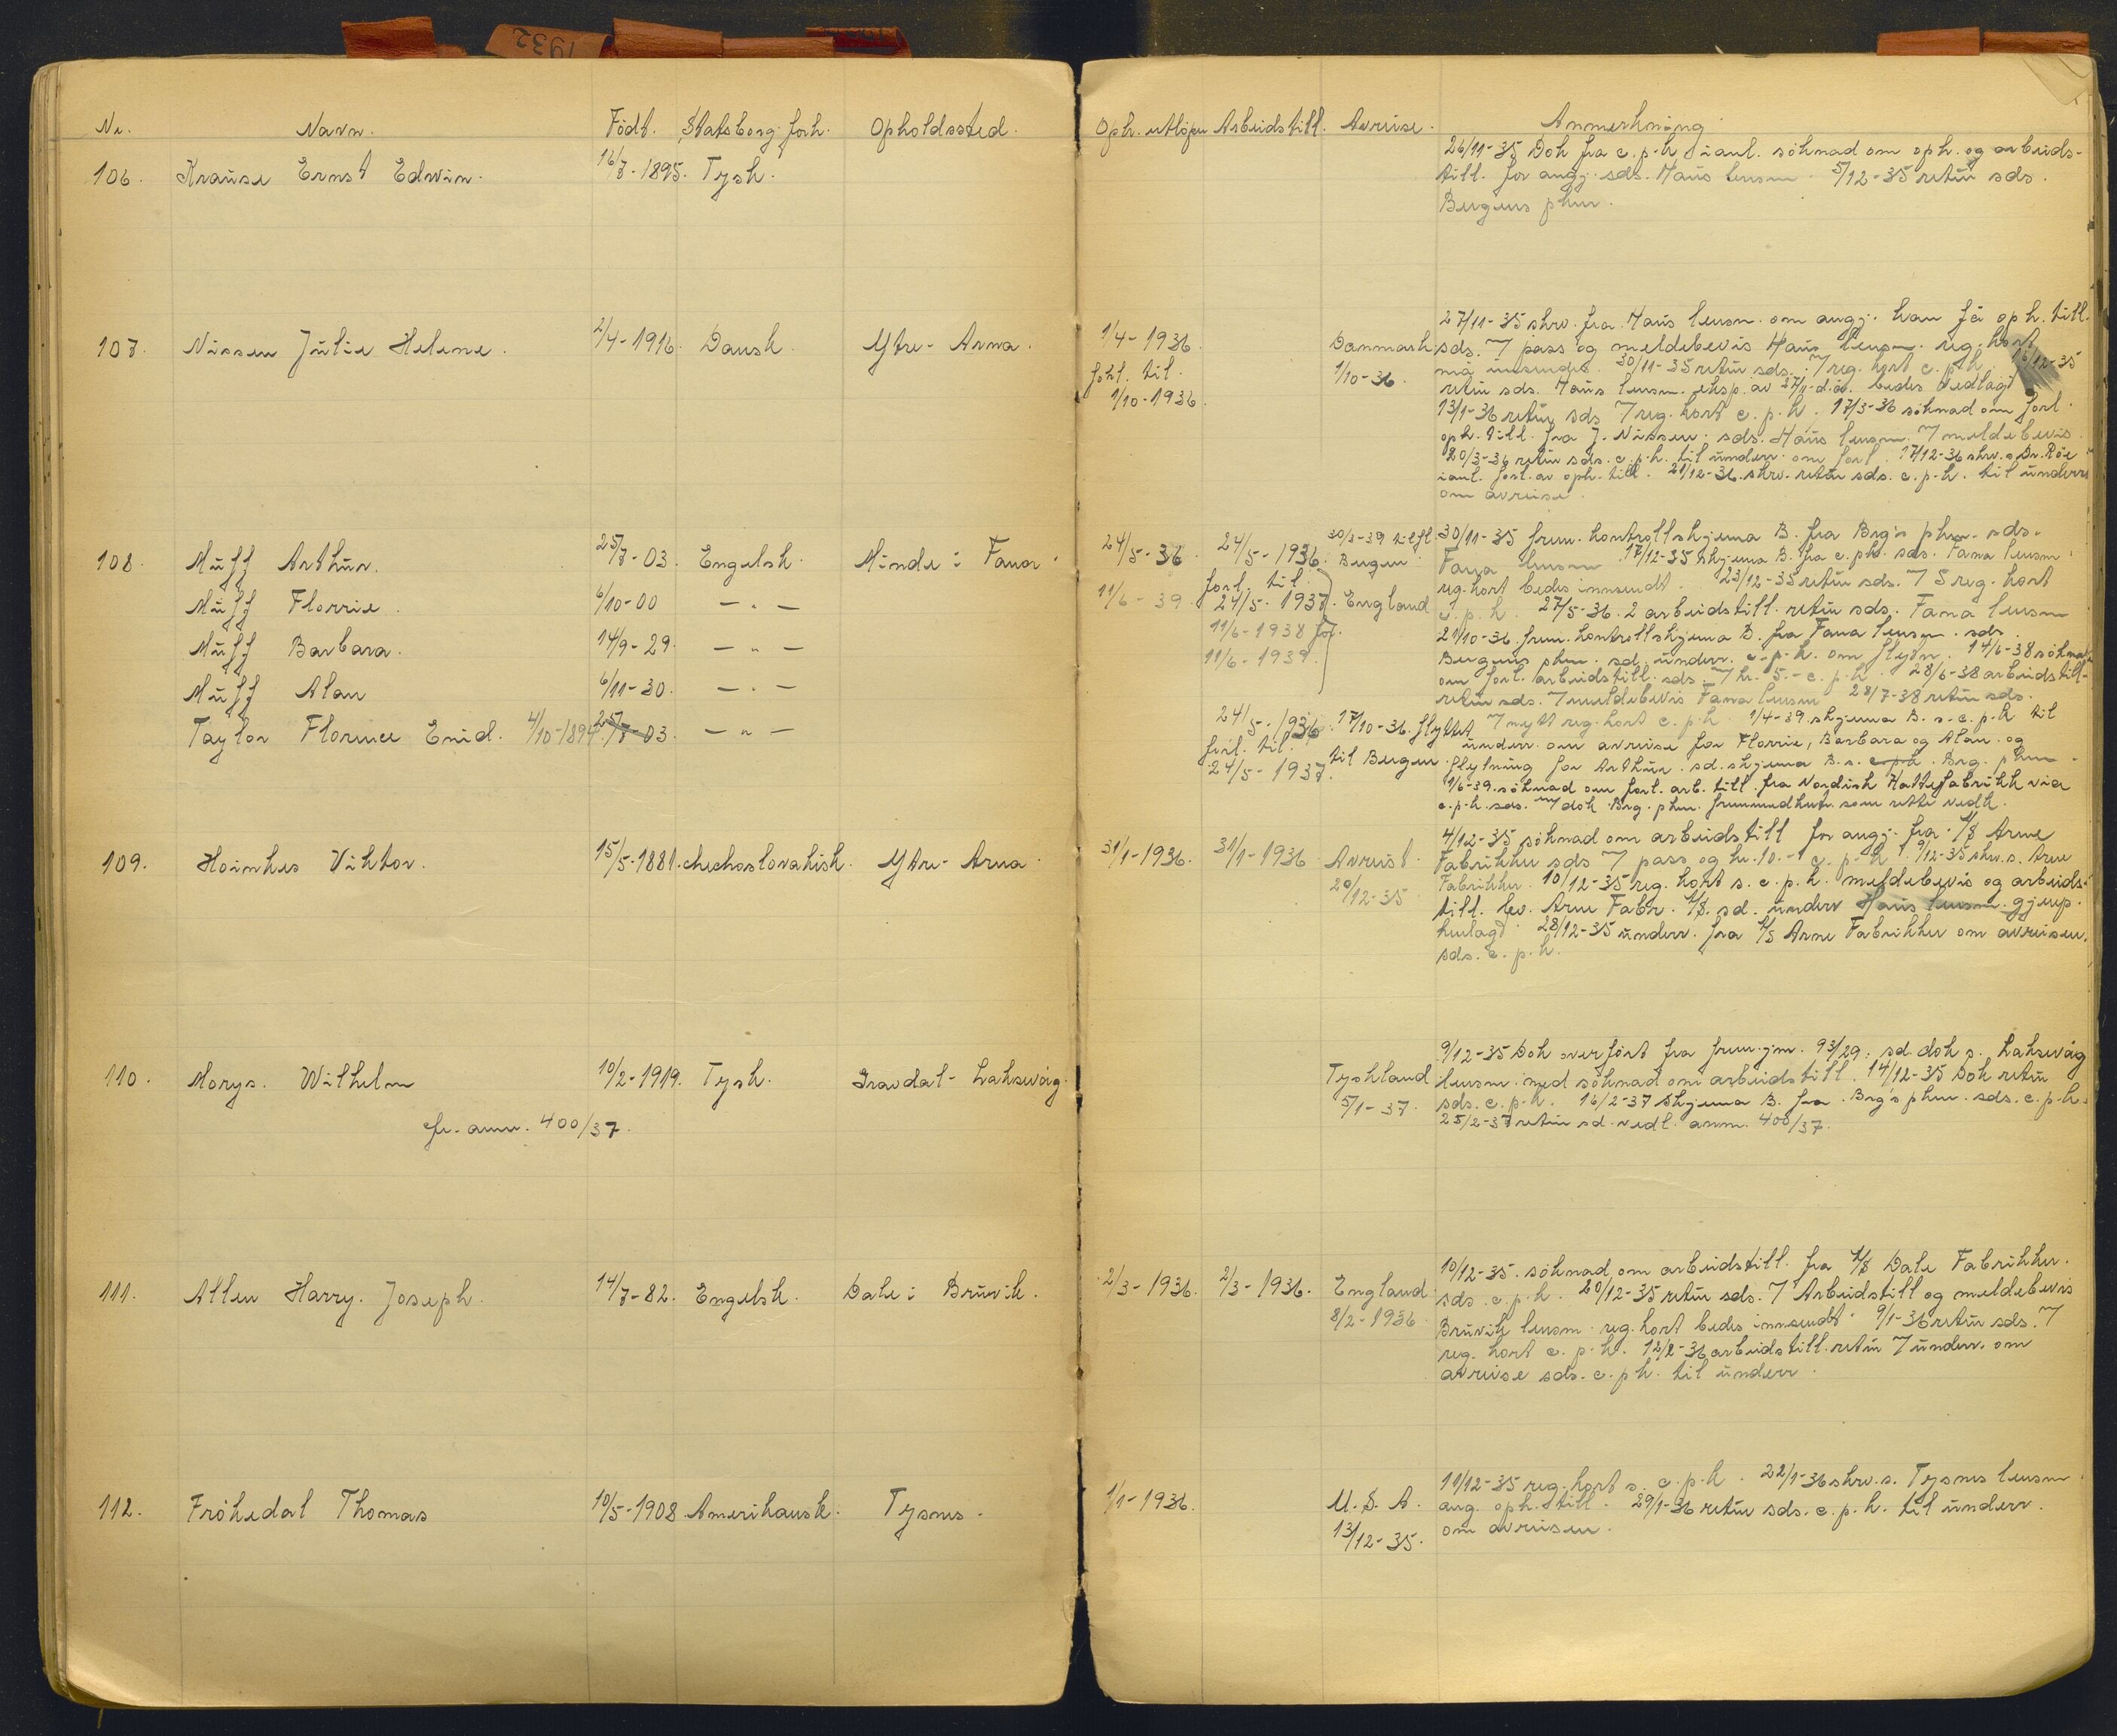 1932
Nr. Navn. Født. Statsborg. forh. Opholdssted.
106. Krause Ernst Edwin. 16/7-1895. Tysk.
107. Nissen Julie Helene. 2/4-1916. Dansk. Ytre-Arna.
108. Muff Arthur. 25/7-03. Engelsk. Minde i Fana.
Muff Florrie. 6/10-00 — " —
Muff Barbara. 14/9-29. — " —
Muff Alan 6/11-30. — " —
Taylor Florence Enid. 4/10-1894 25/7-03. — " —
109. Hoinkes Viktor. 15/5-1881. chechoslovakisk. Ytre-Arna.
110. Morys. Wilhelm 10/2-1919. Tysk. Gravdal-Laksevåg.
fr. anm. 400/37.
111. Allen Harry. Joseph. 14/7-82. Engelsk. Dale i Bruvik.
112. Fröhedal Thomas 10/5-1908 Amerikansk. Tysnes.
Oph. utløper Arbeidstill. Avreise. Anmerkning
26/11-35 Dok fra c.p.k i anl. søknad om oph. og arbeids-
till. for angj. sds. Haus lensm. 5/12-35 retur sds.
Bergens pkm.
27/11-35 skrv. fra Haus lensm. om angj. kan få oph. till.
1/4-1936. Danmark sds. 7 pass og meldebevis Haus lensm. reg. kort
forl. til. 1/10-36. må innsendes. 30/11-35 retur sds. 7 reg. kort c.p.k. 16/12-35
1/10-1936. retur sds. Haus lensm. eksp. av 27/11 d.å. bedes vedlagt
13/1-36 retur sds 7 reg. kort c.p.k. 17/3-36 søknad om forl.
oph. till. fra J. Nissen. sds. Haus lensm. 7 meldebevis
20/3-36 retur sds. c.p.k. til underr. om forl. 17/12-36 skrv.
i anl. forl. av oph. till. 21/12-36. skrv. retur sds. c.p.k. til underr
om avreise.
24/5-36. 24/5-1936. 30/3-39 til Bergen. 30/11-35 frem. kontrollskjema B. fra Brg's pkm. sds.
Fana lensm 17/12-35 skjema B. fra c.pk. sds. Fana lensm
forl. til reg. kort bedes innsendt. 23/12-35 retur sds. 7 5 reg. kort
11/6-39. 24/5-1937. England c.p.k. 27/5-36. 2 arbeidstill. retur sds. Fana lensm
11/6-1938 21/10-36. frem. kontrollskjema B. fra Fana lensm. sds.
11/6-1939. Bergens pkm. sd. underr. c.p.k. om flytn. 14/6-38 søknad
om forl. arbeidstill. sds. 7 kr. 5.- c.p.k. 28/6-38 arbeidstill-
retur sds. 7 meldebevis Fana lensm 28/7-38 retur sds.
24/5-1936. 17/10-36. flyttet 7 nytt reg. kort c.p.k. 1/4-39. skjema B. s. c.p.k til
forl. til til Bergen. underr. om avreise for Florrie, Barbara og Alan. og
24/5-1937. flytning for Arthur. sd. skjema B. s. c.p.k. Brg. pkm
1/6-39. søknad om forl. arb. till. fra Nordisk Hattefabrikk via
c.p.k. sds. 7 dok Brg. pkm. fremmedkont. som rette vedk.
4/12-35 søknad om arbeidstill for angj. fra A/S Arne
31/1-1936. 31/1-1936 Avreist Fabrikker sds 7 pass og kr. 10.- c.p.k. 9/12-35 skrv. s. Arne
20/12-35 Fabrikker. 10/12-35 reg. kort s. c.p.k. meldebevis og arbeids-
till. lev. Arne Fabr. A/S. sd. underr Haus lensm. gjenp.
henlagt. 28/12-35 underr. fra A/S Arne Fabrikker om avreisen.
sds. c.p.k.
9/12-35 Dok overført fra frem.jnr. 93/29. sd. dok s. Laksevåg
Tyskland lensm. med søknad om arbeidstill. 14/12-35 Dok retur
5/1-37. sds. c.p.k. 16/2-37 Skjema B. fra Brg's pkm. sds. c.p.k.
25/2-37 retur sd. vedl. anm. 400/37.
10/12-35. søknad om arbeidstill. fra A/S Dale Fabrikker.
2/3-1936. 2/3-1936. England sds. c.p.k. 20/12-35 retur sds. 7 Arbeidstill og meldebevis
8/2-1936 Bruvik lensm. reg. kort bedes innsendt. 9/1-36 retur sds. 7
reg. kort c.p.k. 12/2-36 arbeidstill. retur 7 underr. om
avreise sds. c.p.k. til underr.
11/12-35 reg. kort s. c.p.k. 22/1-36 skrv. s. Tysnes lensm
1/1-1936. U.S.A. ang. oph. till. 29/1-36 retur sds. c.p.k. til underr.
13/12-35. om avreisen.